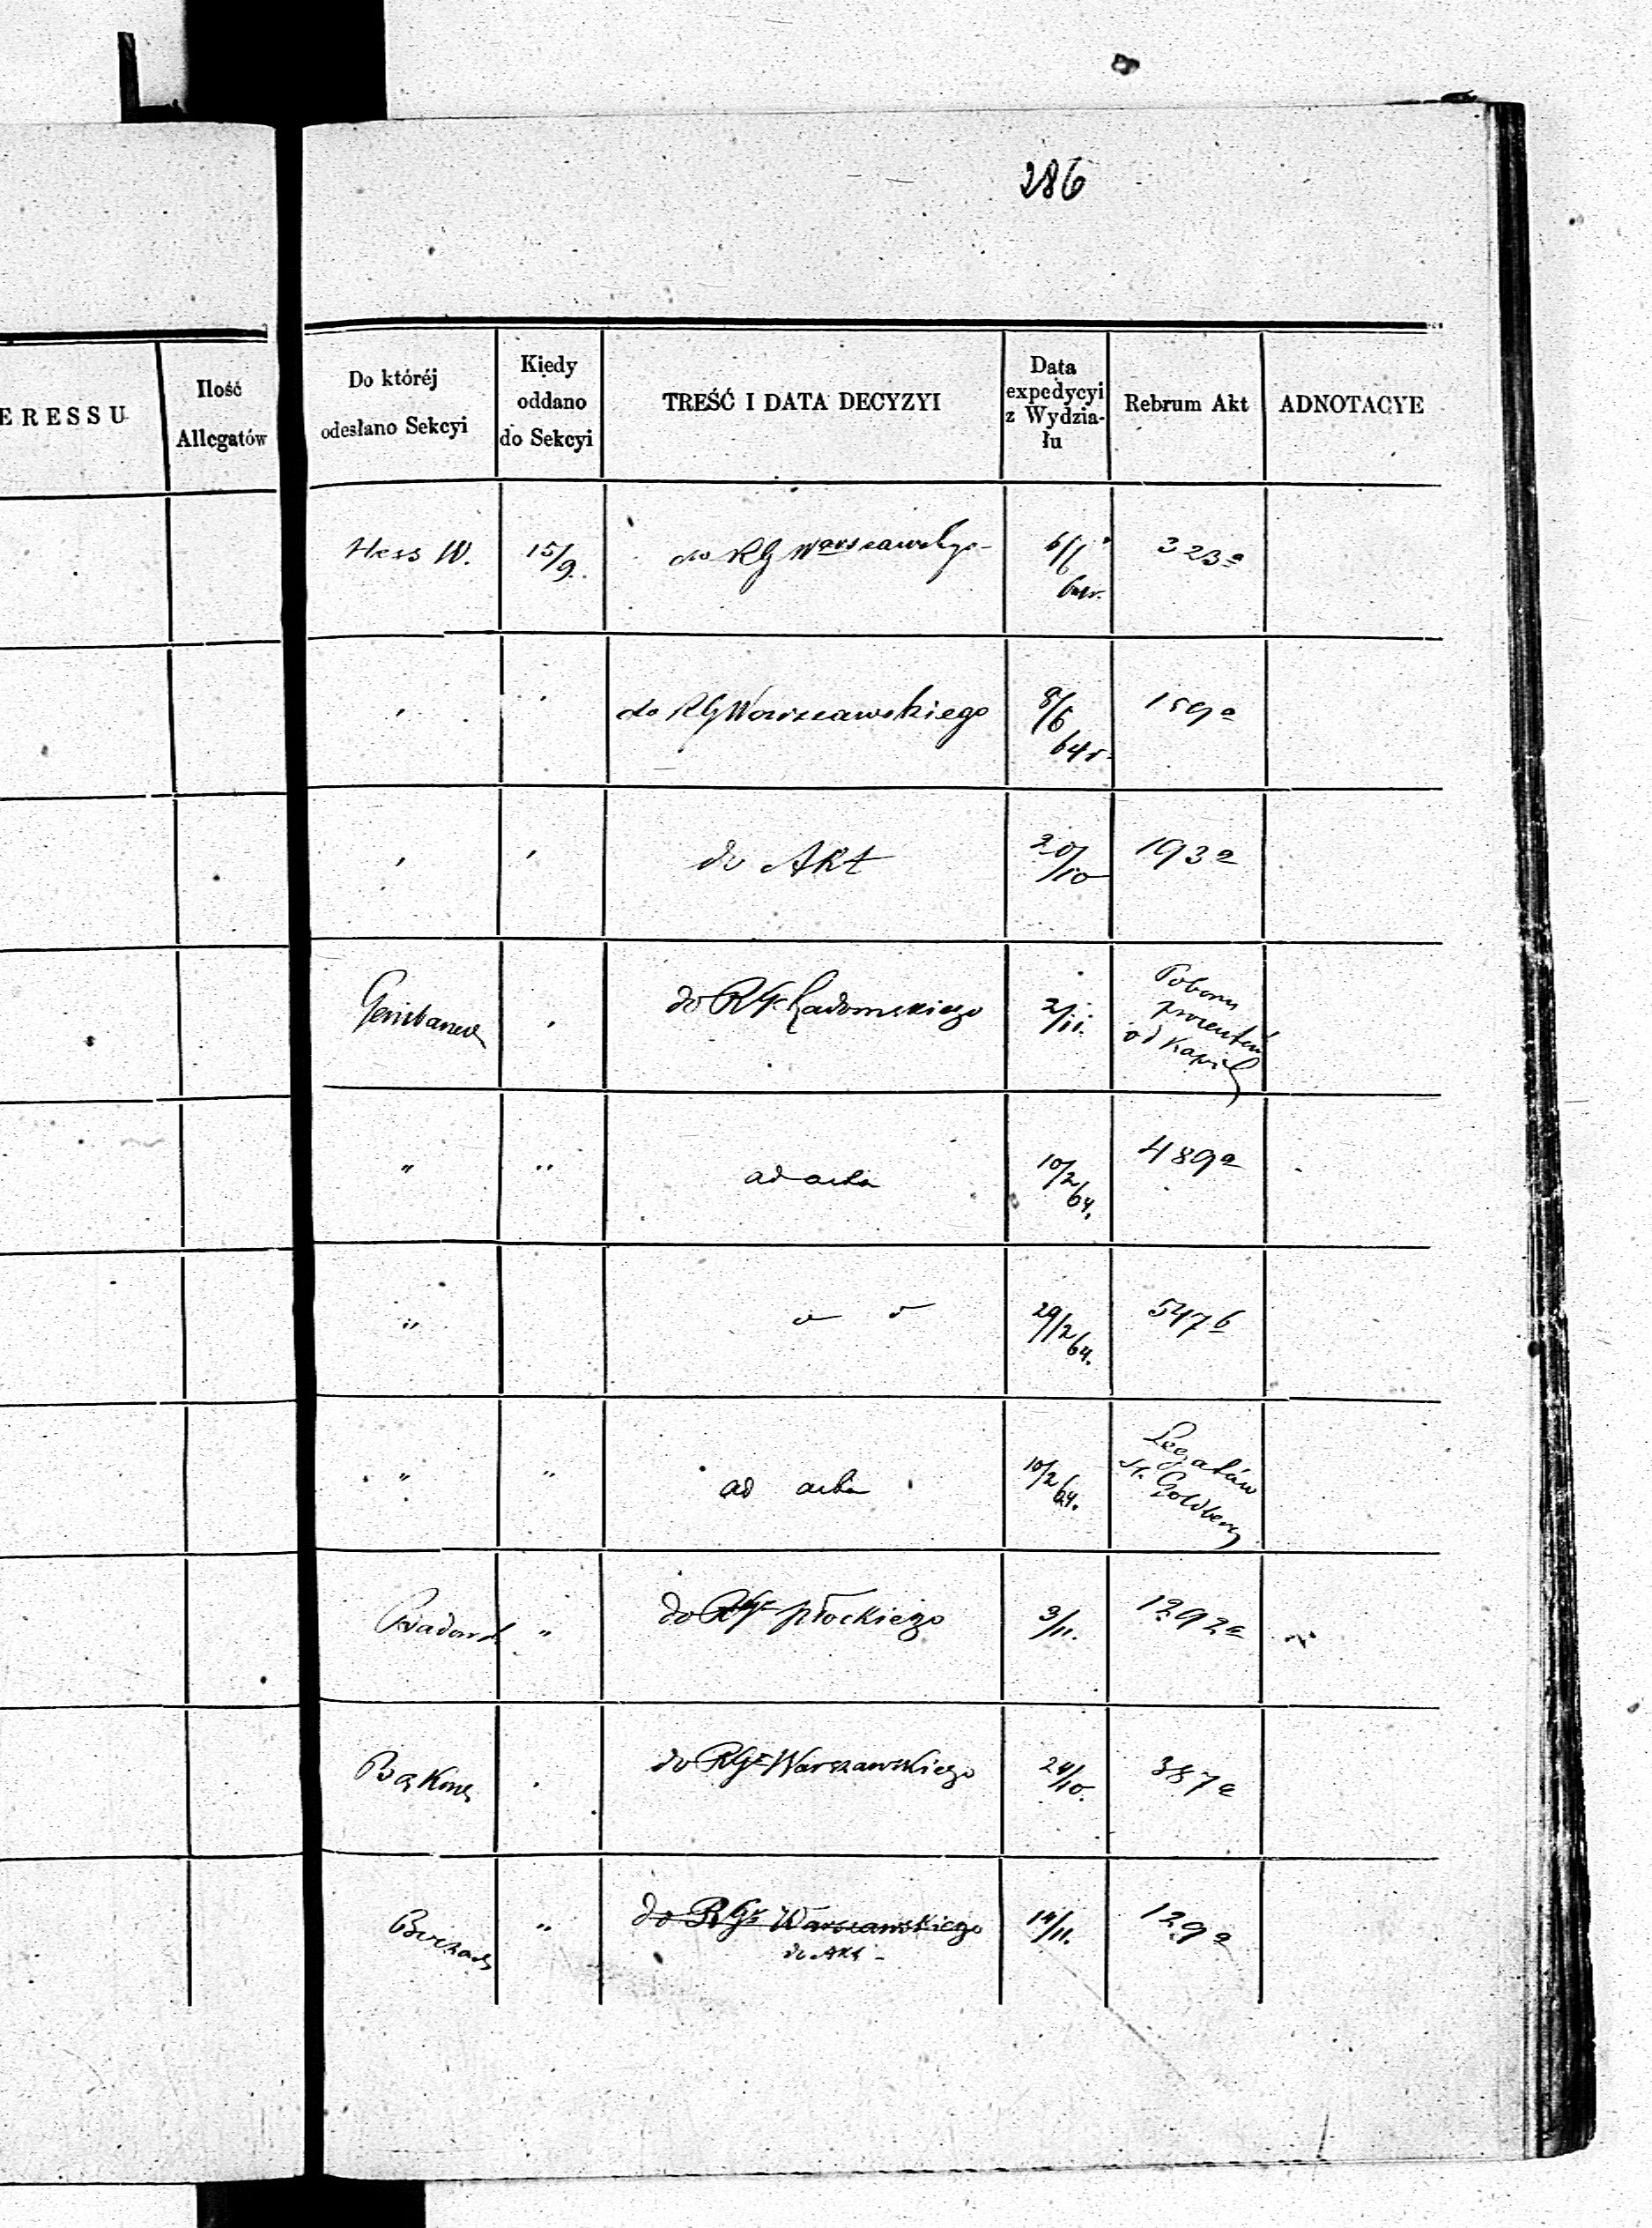 286
ERESSU
Ilość
Allegatów
Do któréj
odesłano Sekcyi
Kiedy
oddano
do Sekcyi
TREŚĆ I DATA DECYZYI
Data
expedycyi
z Wydzia-
łu
Rebrum Akt
ADNOTACYE
Hess W. 15/9. do RG Warszawskgo 6/6 64r. 323a
" " do RG Warszawskiego 8/6 64r. 159a
" " do Akt 20/10 193a
" do RGr. Radomskiego 2/11.
Poboru
procentów
od Kapit
" " ad acta 10/2 64. 489a
" 29/2 64. 547b
" " ad acta 10/2 64.
Legatów
St. Goldberg
" do RGr płockiego 3/11. 1292a
" do RGr Warszawskiego 24/10. 387a
" do RGr Warszawskiego 14/11. 129a
do Akt